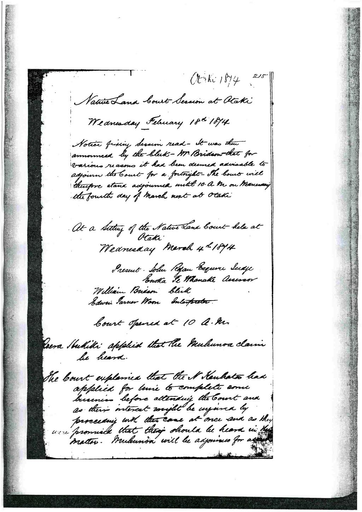 Otaki 1874 215
Native Land Court Session at Otaki
Wednesday Febuary 18th 1874
Notice fixing session read - It was then
announced by the Clerk - Mr Bridson that for
various reasons it had been deemed advisable to
adjourn the Court for a fortnight - The Court will
therefore stand adjourned until 10 A.M. on
the fourth day of March next at Otaki
At a Sitting of the Native Land Court held at
Otaki
Wednesday March 4th 1874
Present - John Rogan Esquire Judge
Assessor
William Bridson Clerk
Edwin Woon Interpreter
Court opened at 10 A.M.
Hukiki applied that the Muhunoa claim
be heard.
The Court explained that the N had
applied for time to complete some
before attending the Court and
as their interest might be injured by
proceeding with this case at once and as they
were promised that they should be heard in this
matter. Muhunoa will be adjourned for